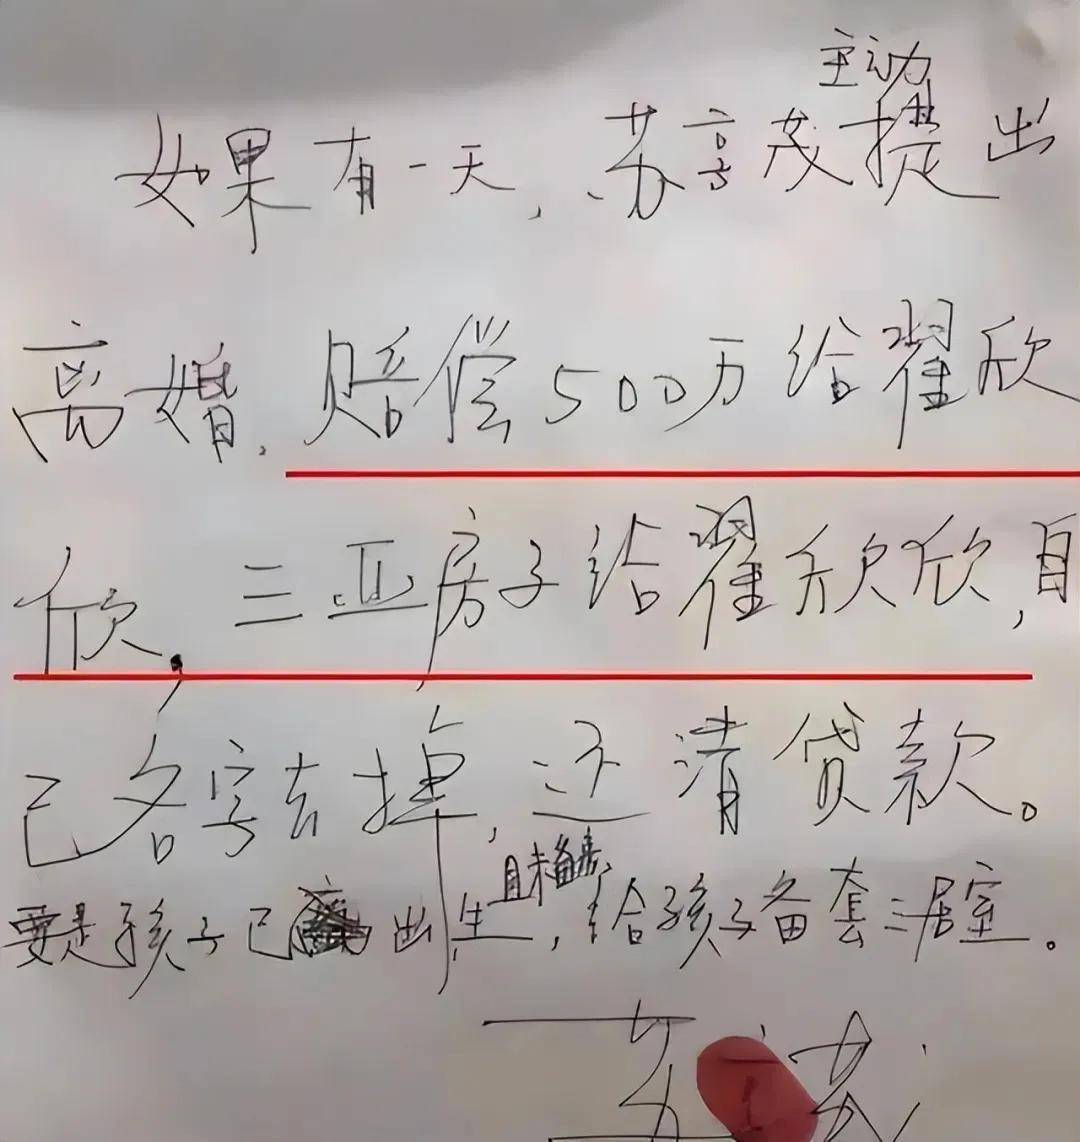 主动
如果有一天,苏享茂提出
离婚,赔偿500万给翟欣
欣,三亚房子给翟欣欣,自
己名字去掉,还清贷款。
且未备房,
要是孩子已出生,给孩子备套二居室。
苏享茂